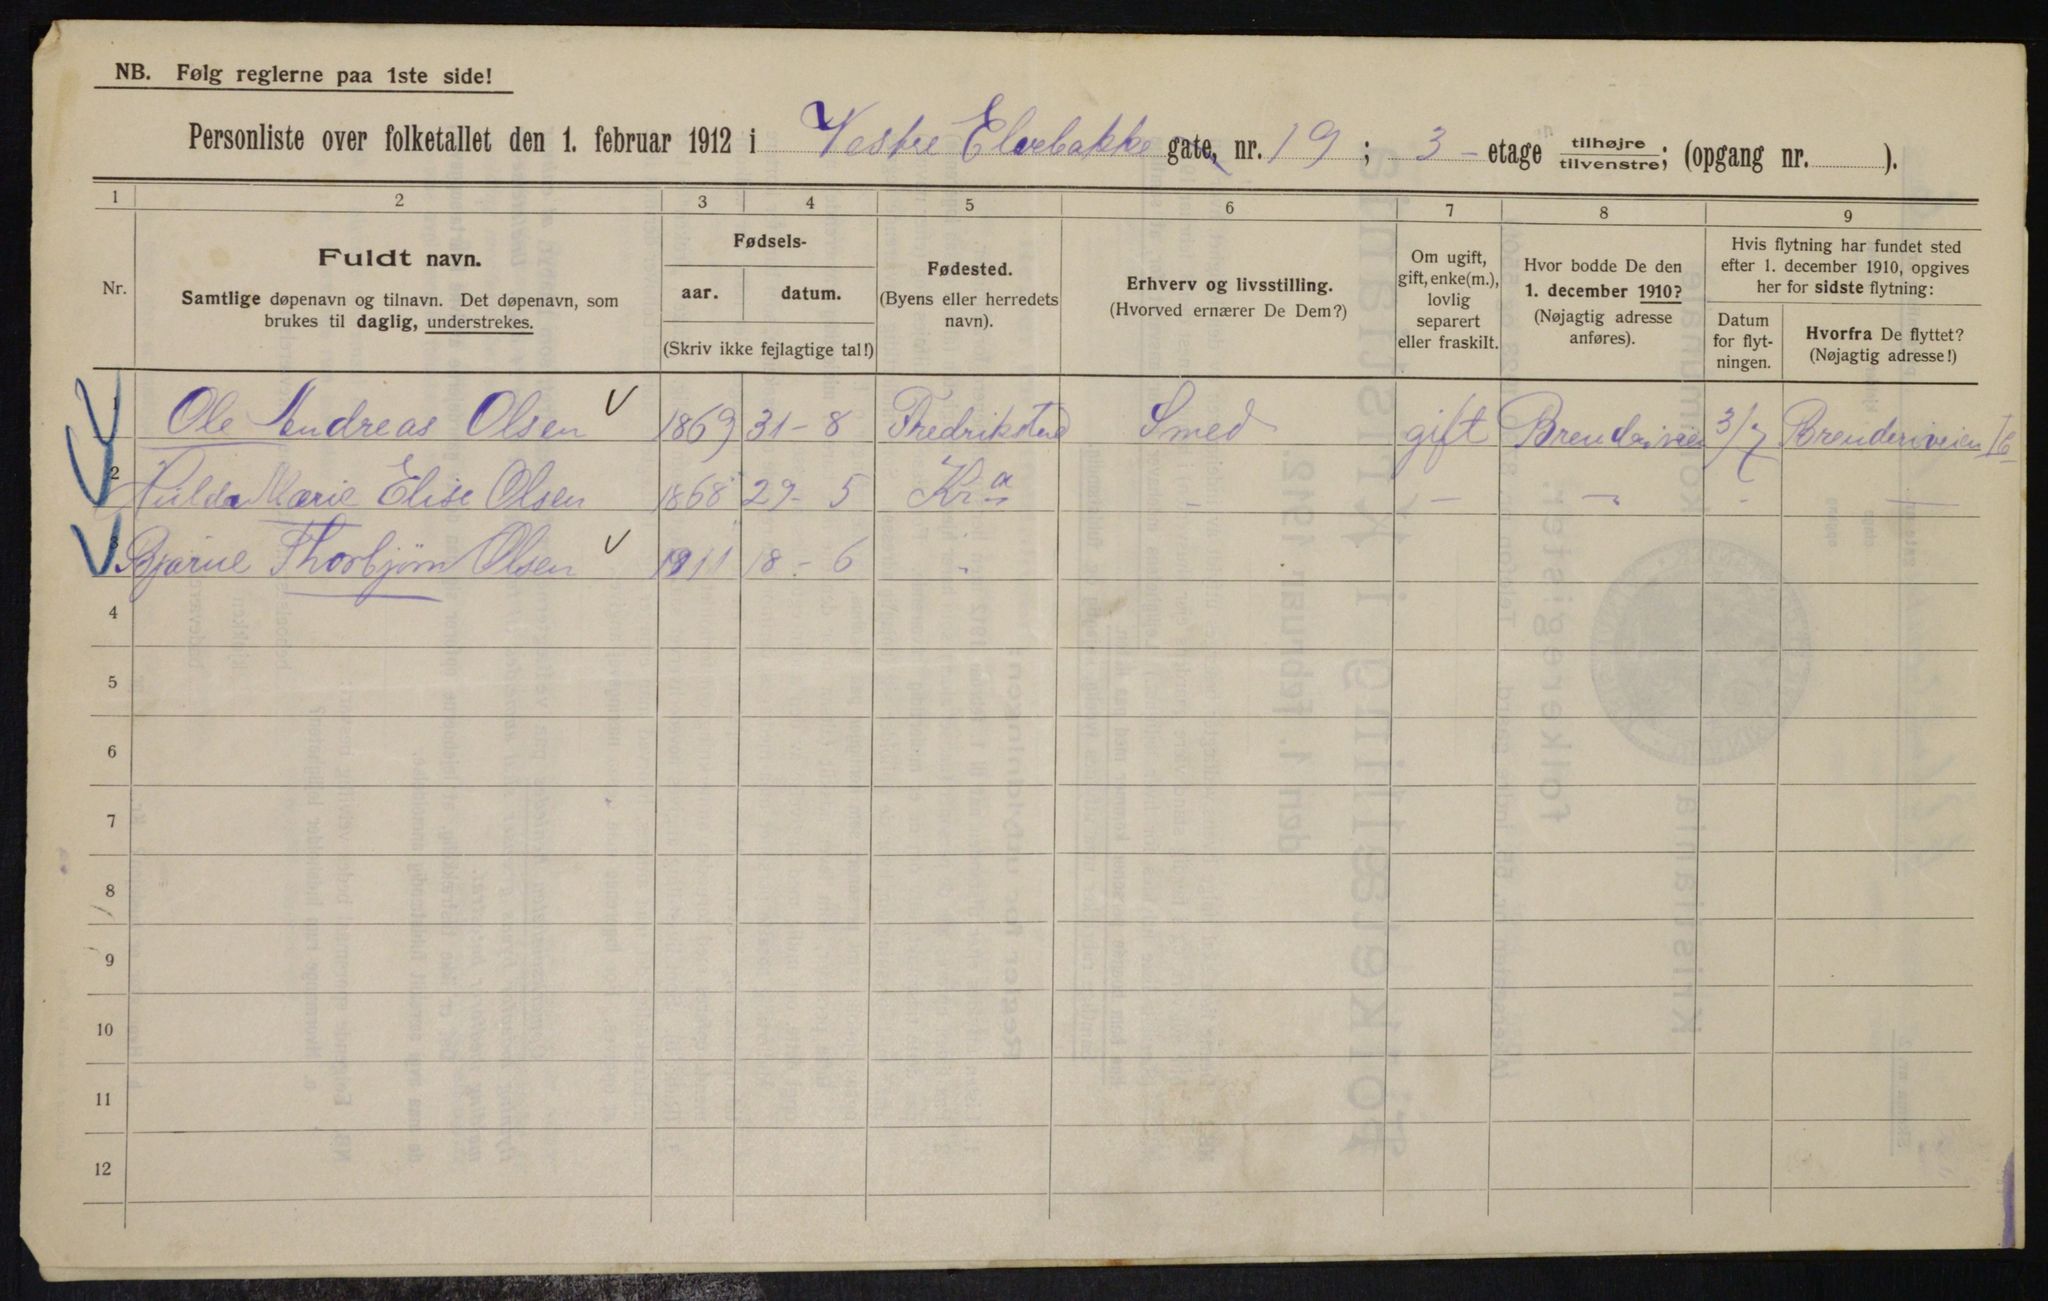 NB. Følg reglerne paa 1ste side!
Personliste over folketallet den 1. februar 1912 i Vestre Elvebakke gate, nr. 19 ; 3 - etage tilhøjre tilvenstre; (opgang nr. ).
1 2 3 4 5 6 7 8 9
Nr.
Fuldt navn.
Samtlige døpenavn og tilnavn. Det døpenavn, som
brukes til daglig, understrekes.
Fødsels-
aar. datum.
(Skriv ikke fejlagtige tal!)
Fødested.
(Byens eller herredets
navn).
Erhverv og livsstilling.
(Hvorved ernærer De Dem?)
Om ugift,
gift, enke(m.),
lovlig
separert
eller fraskilt.
Hvor bodde De den
1. december 1910?
(Nøjagtig adresse
anføres).
Hvis flytning har fundet sted
efter 1. december 1910, opgives
her for sidste flytning:
Datum
for flyt-
ningen.
Hvorfra De flyttet?
(Nøjagtig adresse!)
1 Ole Andreas Olsen 1869 31-8 Fredrikstad Smed gift 3/7 Brenderiveien 16
2 Hulda Marie Elise Olsen 1868 29-5 Kria - - - - -
3 Bjarne Thorbjørn Olsen 1911 18-6 -
4
5
6
7
8
9
10
11
12